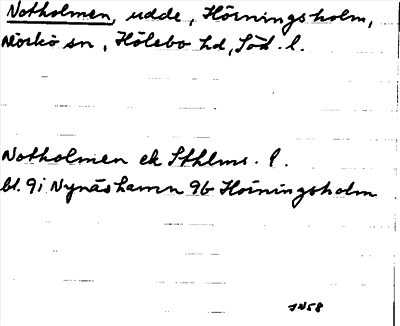 Notholmen, udde, Hörningsholm,
Mörkö sn, Hölebo hd, Söd. l.
Notholmen ek Sthlms. l.
bl. 9i Nynäshamn 9b Hörningsholm
JN58